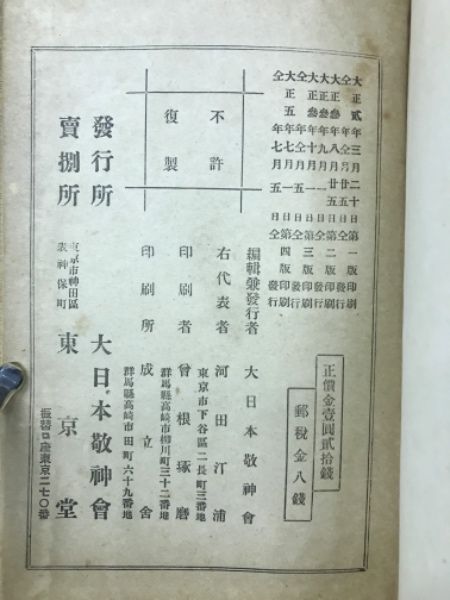 大正貳年三月二十日第一版印刷
仝年仝月廿五日仝發行
大正叁年八月廿五日第二版印刷
大正叁年九月一日仝發行
大正叁年十月一日第三版印刷
仝年仝月五日仝發行
大正五年七月一日第四版印刷
仝年七月五日仝發行
不許
復製
正價金壹圓貳拾錢
郵稅金八錢
編輯兼發行者 大日本敬神會
東京市下谷區二長町三番地
右代表者 河田汀浦
群馬縣高崎市柳川町三十二番地
印刷者 曾根琢磨
群馬縣高崎市田町六十九番地
印刷所 成立舍
發行所 大日本敬神會
賣捌所 東京市神田區表神保町 東京堂
振替口座東京二七〇番